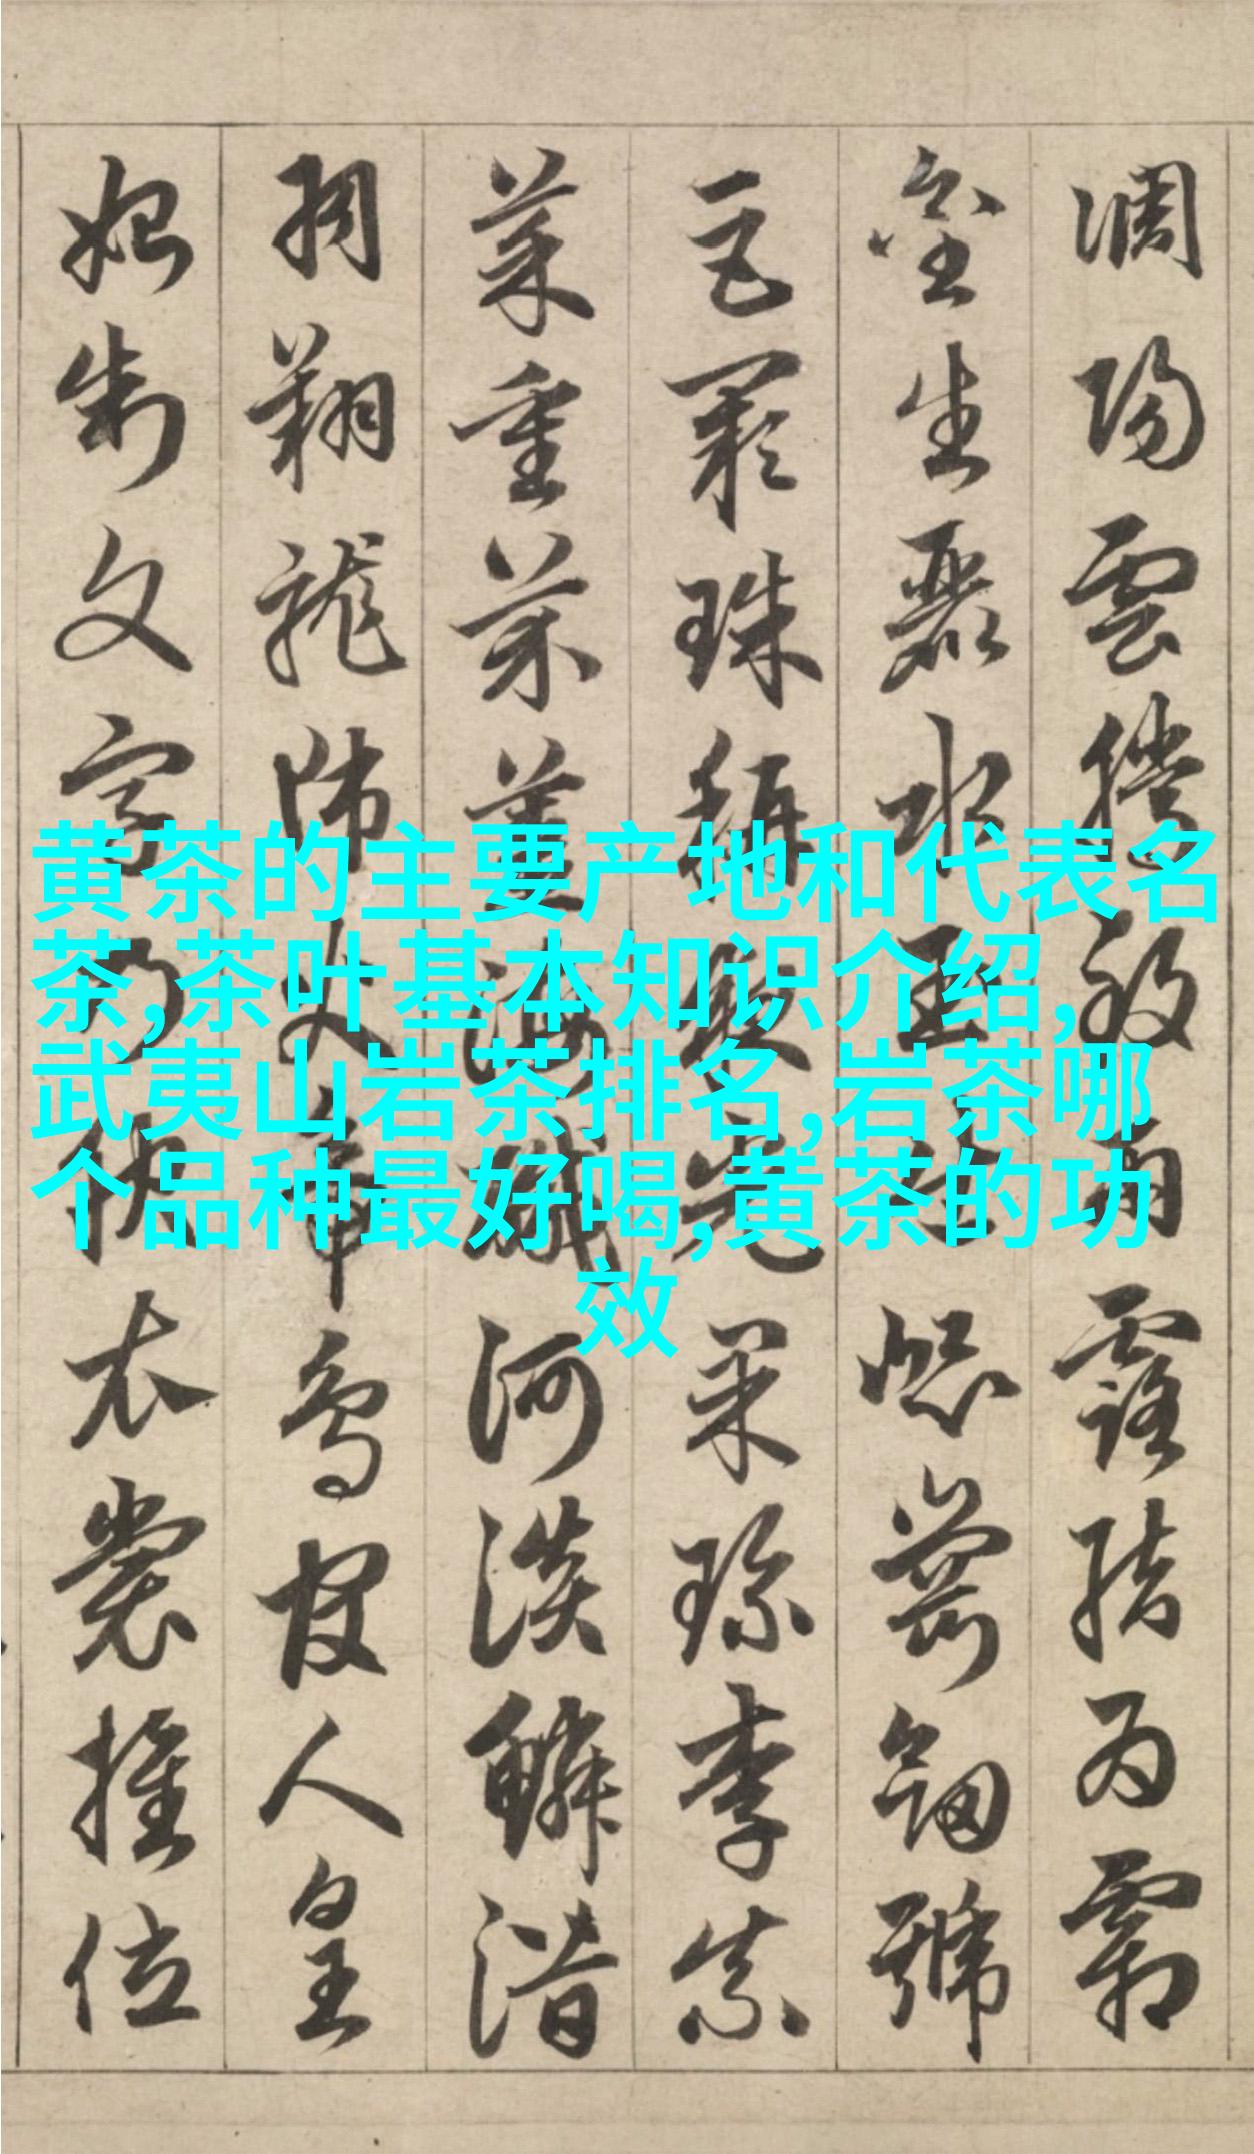 黄茶的主要产地和代表名
茶,茶叶基本知识介绍,
武夷山岩茶排名,岩茶哪
个品种最好喝,黄茶的功
效
調陽雲騰致雨露結為霜
金生麗水玉出崐崗劍號
巨闕珠稱夜光果珍李柰
菜重芥薑海鹹河淡鱗潛
羽翔龍師火帝鳥官人皇
始制文字乃服衣裳推位